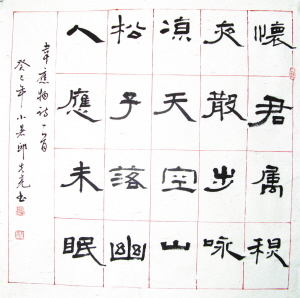 懷君属秋
夜散步咏
凉天空山
松子落幽
人應未眠
韋應物詩一首
癸巳年小暑書